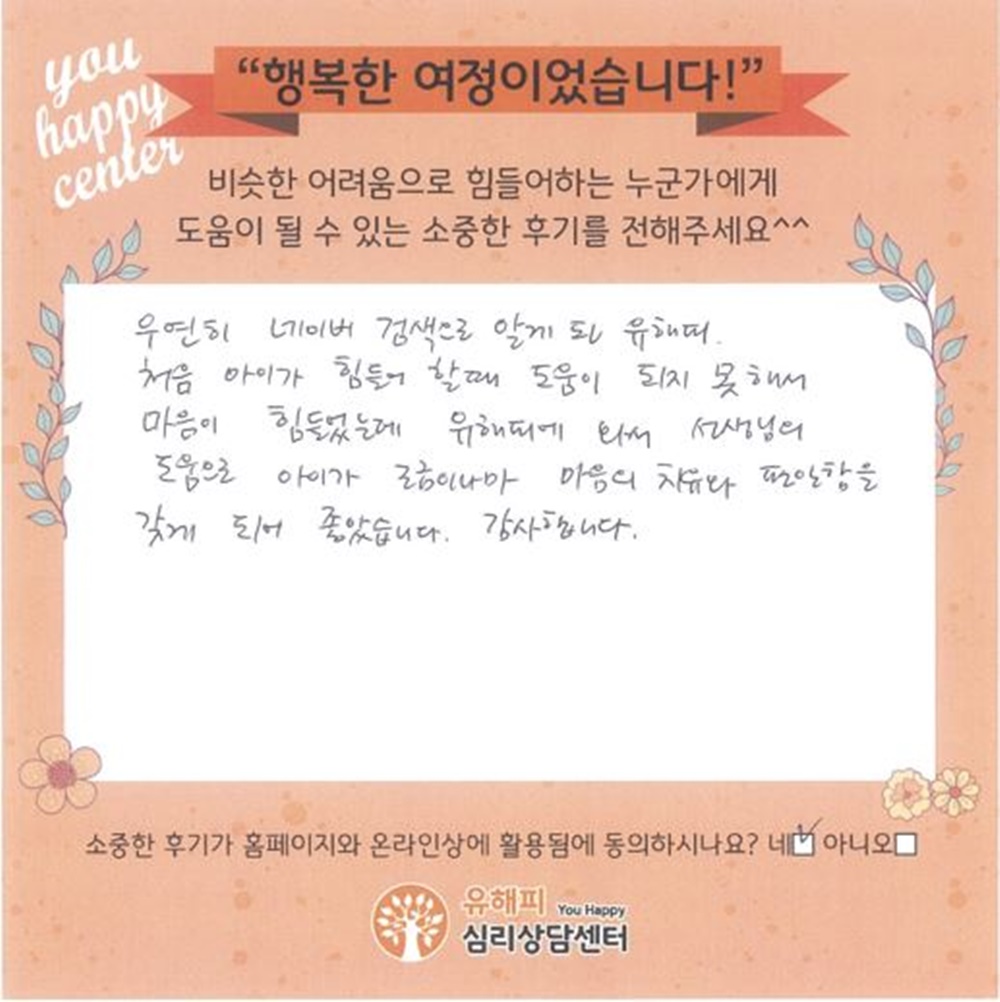 you
happy
center
“행복한 여정이었습니다!”
비슷한 어려움으로 힘들어하는 누군가에게
도움이 될 수 있는 소중한 후기를 전해주세요^^
우연히 네이버 검색으로 알게 된 유해피.
처음 아이가 힘들어 할때 도움이 되지 못해서
마음이 힘들었는데 유해피에 와서 선생님의
도움으로 아이가 조금이나마 마음의 치유와 편안함을
갖게 되어 좋았습니다. 감사합니다.
소중한 후기가 홈페이지와 온라인상에 활용됨에 동의하시나요? 네 아니오
유해피 You Happy
심리상담센터